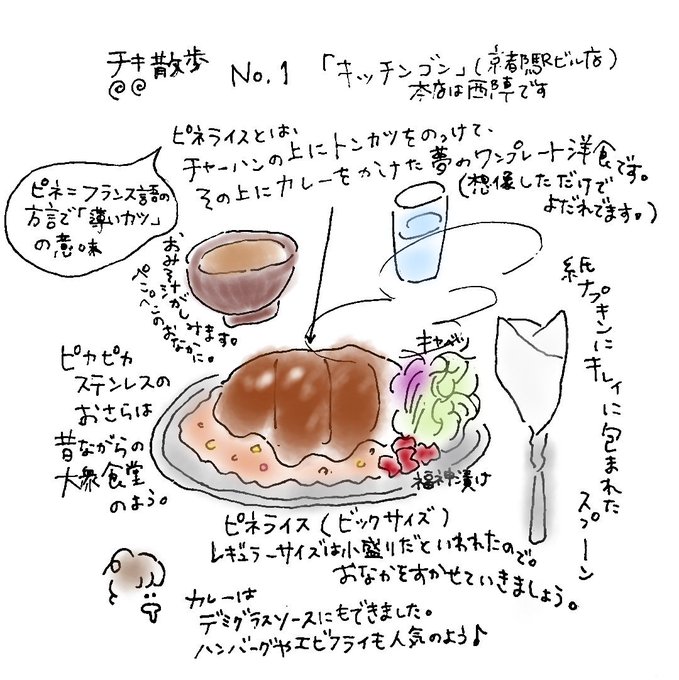 チキ散歩 No.1 「キッチンゴン」(京都駅ビル店)
本店は西陣です
ピネライスとは、
チャーハンの上にトンカツをのっけて、
その上にカレーをかけた夢のワンプレート洋食です。
(想像しただけで
よだれでます。)
ピネ=フランス語の
方言で「薄いカツ」
の意味
おみそ汁がしみます。
ペンペンのおなかに。
紙ナプキンにキレイに包まれた
スプーン
キャベツ
ピカピカ
ステンレスの
おさらは
昔ながらの
大衆食堂
のよう。
福神漬け
ピネライス(ビックサイズ)
レギュラーサイズは小盛りだといわれたので。
おなかをすかせていきましょう。
カレーは
デミグラスソースにもできました。
ハンバーグやエビフライも人気のよう♪